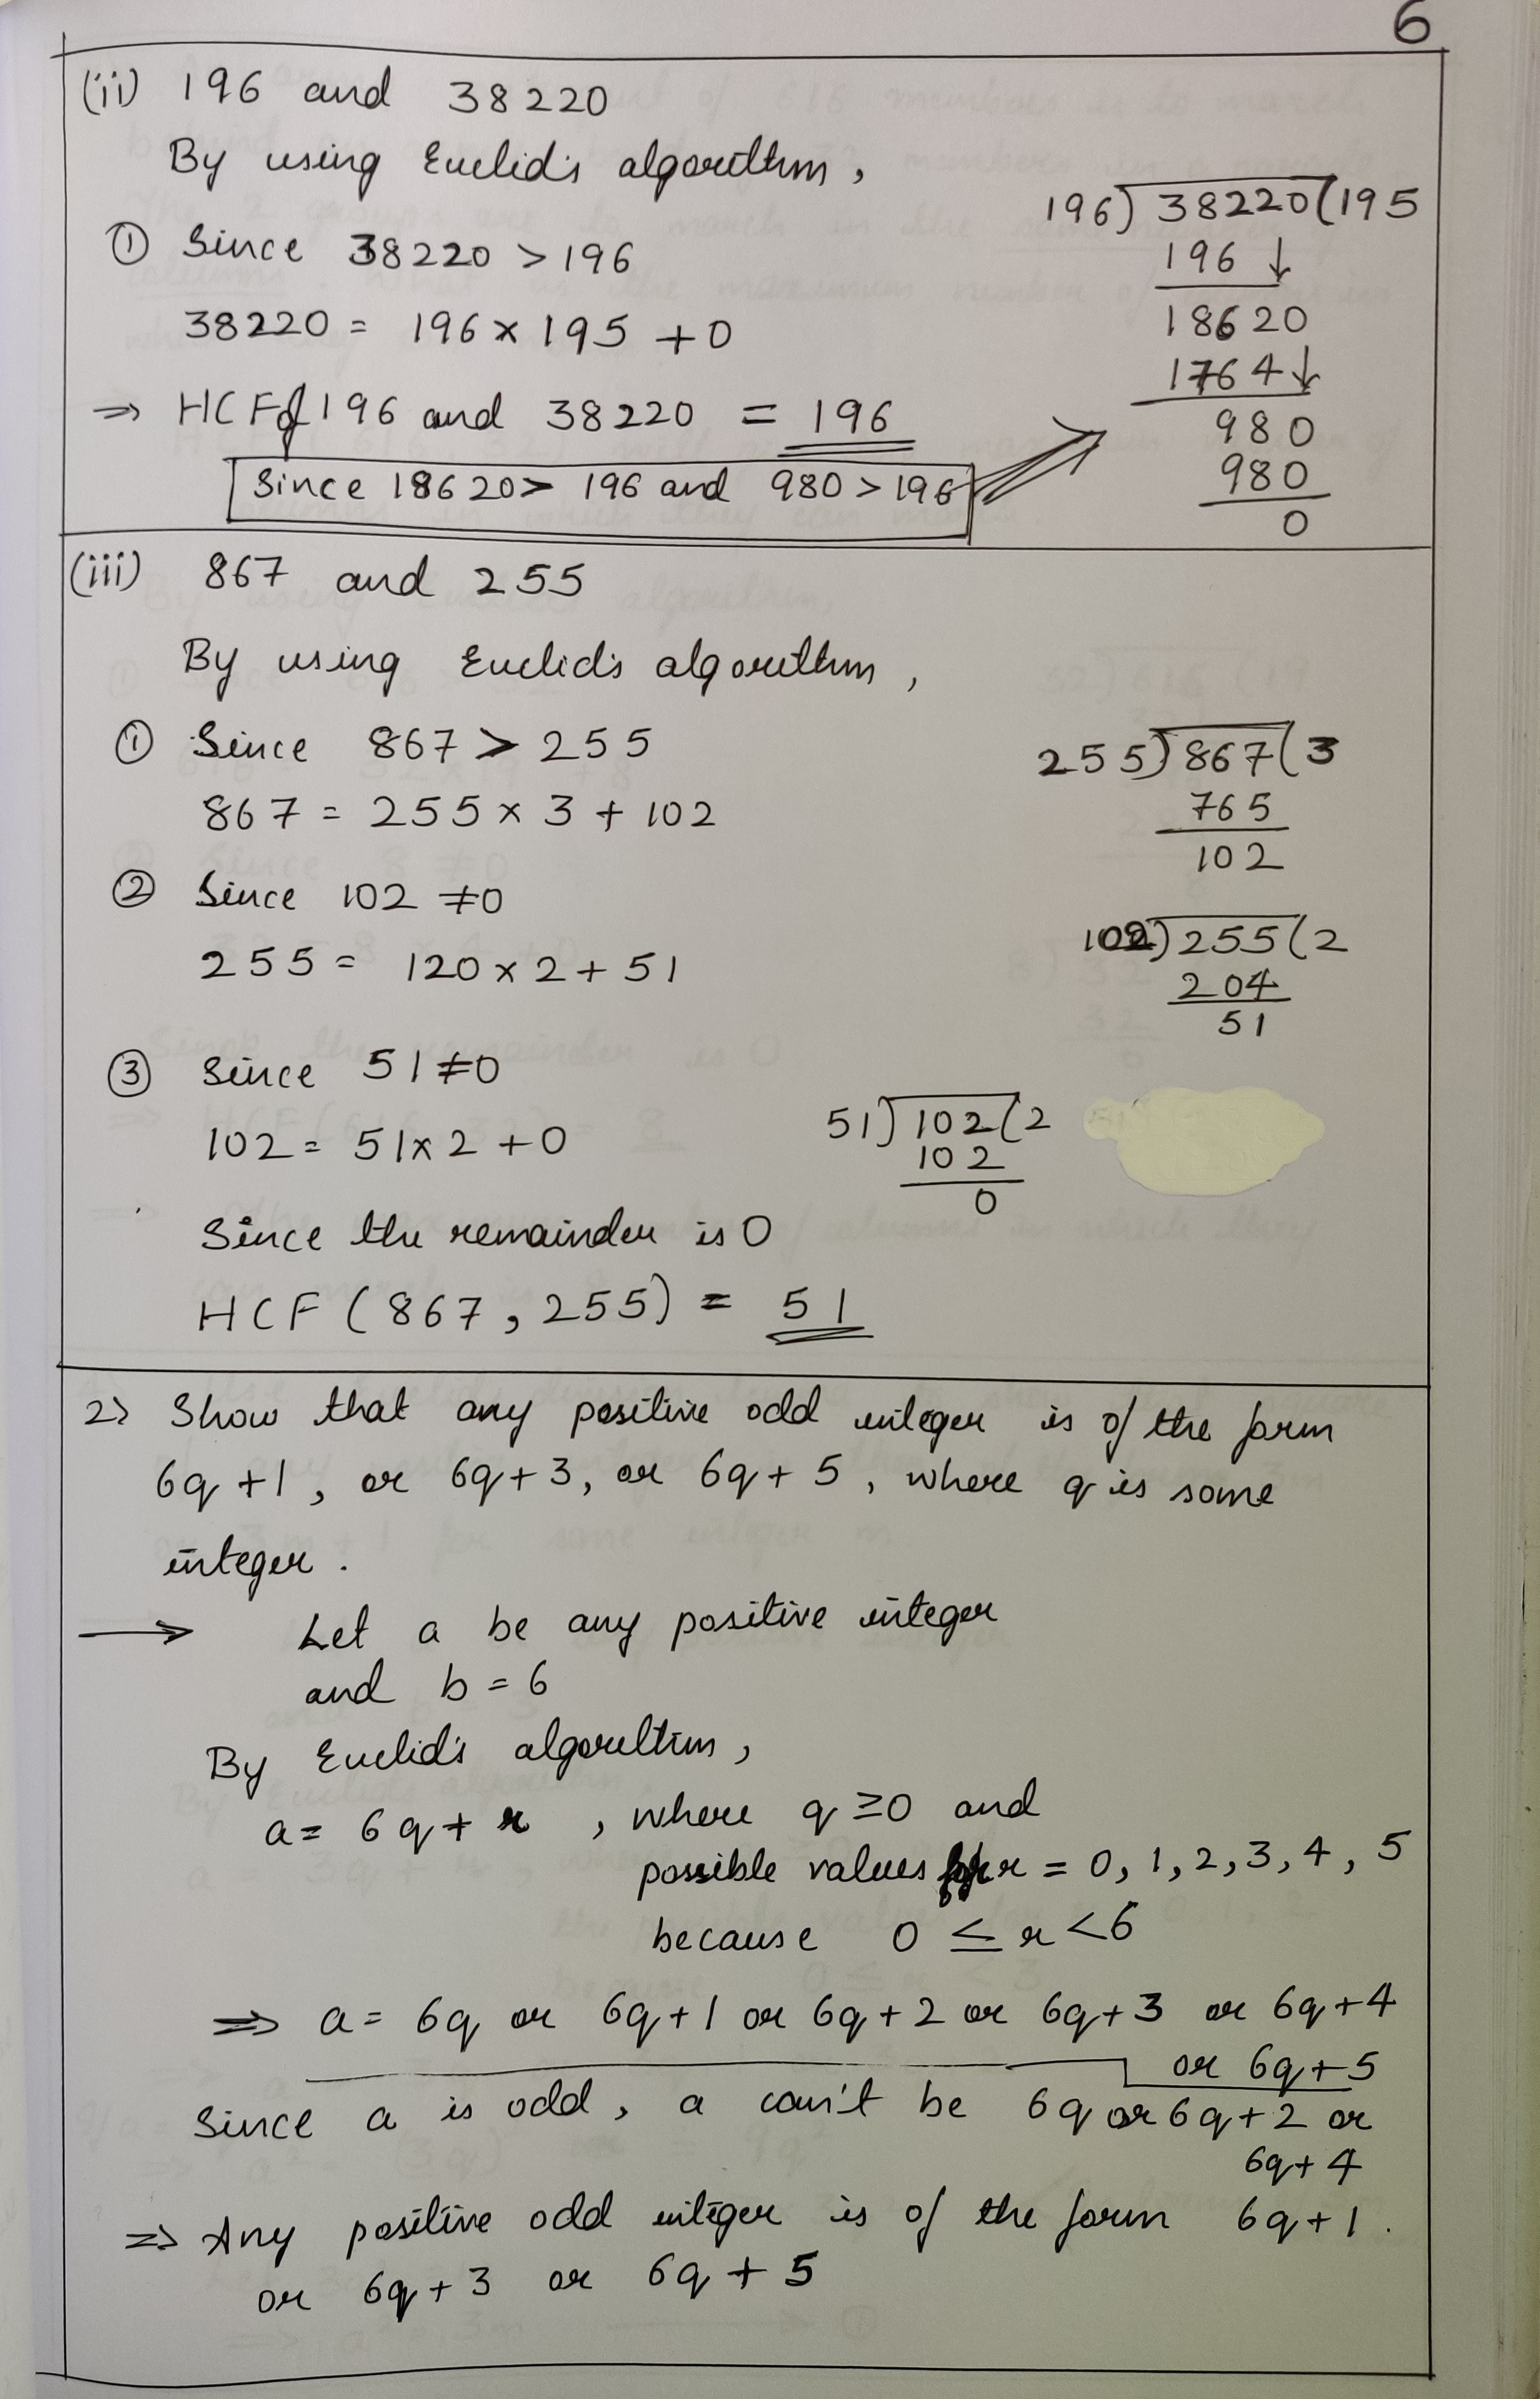 6
(ii) 196 and 38220
By using Euclid's algorithm,
① Since 38220 > 196
38220 = 196 x 195 + 0
⇒ HCF of 196 and 38220 = 196
Since 18620 > 196 and 980 > 196
196) 38220 (195
196 ↓
18620
1764 ↓
980
980
0
(iii) 867 and 255
By using Euclid's algorithm,
① Since 867 > 255
867 = 255 x 3 + 102
255) 867 (3
765
102
② Since 102 ≠ 0
255 = 120 x 2 + 51
102) 255 (2
204
51
③ Since 51 ≠ 0
102 = 51 x 2 + 0
51) 102 (2
102
0
Since the remainder is 0
HCF (867, 255) = 51
2> Show that any positive odd integer is of the form
6q + 1, or 6q + 3, or 6q + 5, where q is some
integer.
→ Let a be any positive integer
and b = 6
By Euclid's algorithm,
a = 6q + r , where q ≥ 0 and
possible values for r = 0, 1, 2, 3, 4, 5
because 0 ≤ r < 6
⇒ a = 6q or 6q + 1 or 6q + 2 or 6q + 3 or 6q + 4
or 6q + 5
Since a is odd, a can't be 6q or 6q + 2 or
6q + 4
⇒ Any positive odd integer is of the form 6q + 1.
or 6q + 3 or 6q + 5